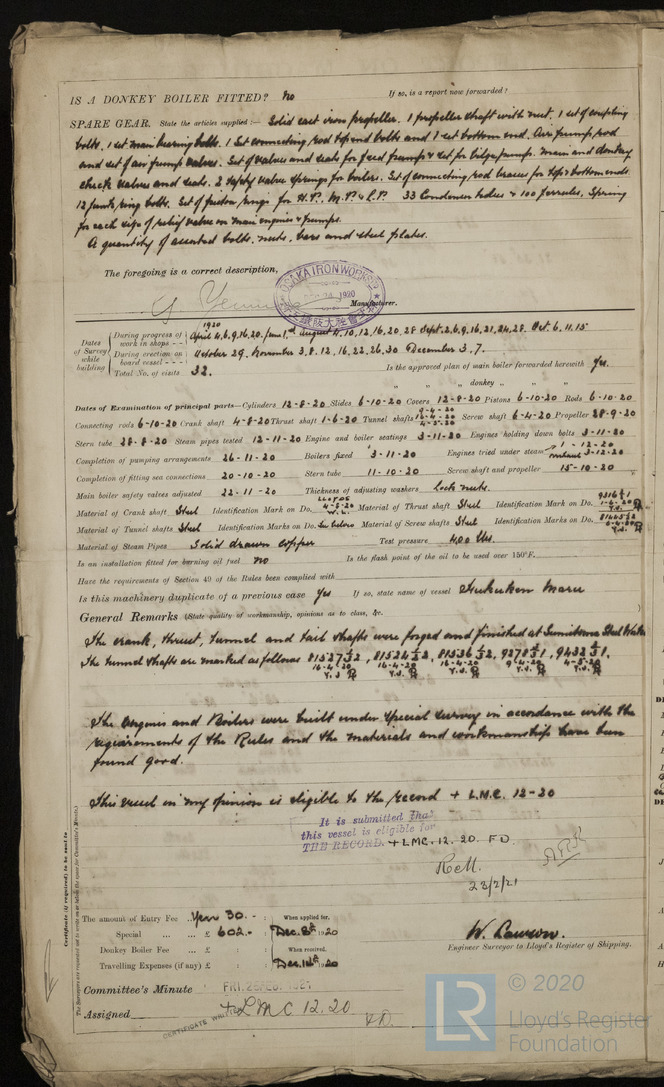 IS A DONKEY BOILER FITTED? No If so, is a report now forwarded?
SPARE GEAR. State the articles supplied :— Solid cast iron propeller. 1 propeller shaft with nut. 1 set of coupling
bolts. 1 set main bearing bolts. 1 Set connecting rod top end bolts and 1 set bottom end. Air pump rod
and set of air pump valves. Set of valves and seats for feed pumps & set for bilge pumps. Main and donkey
check valves and seats. 2 safety valve springs for boilers. Set of connecting rod brasses for top & bottom ends.
12 junk ring bolts. Set of piston rings for H.P. M.P. & L.P. 33 Condenser tubes & 100 ferrules. Spring
for each size of relief valve on main engines & pumps.
A quantity of assorted bolts, nuts, bars and steel plates.
The foregoing is a correct description,
OSAKA IRON WORKS 1920
Manufacturer.
1920
Dates of Survey while building
During progress of work in shops - - April 4, 6, 9, 16, 20. June 1st August 4, 10, 12, 16, 20, 28 Sept. 2, 6, 9, 16, 21, 24, 28. Oct. 6, 11, 15
During erection on board vessel - - - October 29. November 3, 8, 12, 16, 22, 26, 30 December 3, 7.
Total No. of visits 32. Is the approved plan of main boiler forwarded herewith Yes.
" " " donkey " " "
Dates of Examination of principal parts—Cylinders 12-8-20 Slides 6-10-20 Covers 12-8-20 Pistons 6-10-20 Rods 6-10-20
Connecting rods 6-10-20 Crank shaft 4-8-20 Thrust shaft 1-6-20 Tunnel shafts 9-4-20 16-4-20 4-5-20 Screw shaft 6-4-20 Propeller 28-9-20
Stern tube 28-8-20 Steam pipes tested 12-11-20 Engine and boiler seatings 3-11-20 Engines holding down bolts 3-11-20
Completion of pumping arrangements 26-11-20 Boilers fixed 3-11-20 Engines tried under steam 1-12-20 3-12-20
Completion of fitting sea connections 20-10-20 Stern tube 11-10-20 Screw shaft and propeller 15-10-20
Main boiler safety valves adjusted 22-11-20 Thickness of adjusting washers lock nuts.
Material of Crank shaft Steel Identification Mark on Do. 4-8-20 Material of Thrust shaft Steel Identification Mark on Do. 1-6-20 Y.J.
Material of Tunnel shafts Steel Identification Marks on Do. See below Material of Screw shafts Steel Identification Marks on Do. 6-4-20 Y.J.
Material of Steam Pipes Solid drawn copper Test pressure 400 lbs.
Is an installation fitted for burning oil fuel no Is the flash point of the oil to be used over 150°F.
Have the requirements of Section 49 of the Rules been complied with
Is this machinery duplicate of a previous case Yes If so, state name of vessel Fukuken Maru
General Remarks (State quality of workmanship, opinions as to class, &c.
The crank, thrust, tunnel and tail shafts were forged and finished at Sumitomo Steel Works
The tunnel shafts are marked as follows
16-4-20 16-4-20 16-4-20 9-4-20 4-5-20
Y.J. Y.J. Y.J. Y.J. Y.J.
The Engines and Boilers were built under special survey in accordance with the
requirements of the Rules and the materials and workmanship have been
found good.
This vessel in my opinion is eligible to the record + L.M.C. 12-20
It is submitted that
this vessel is eligible for
THE RECORD. + LMC. 12. 20. F.D.
23/2/21
Certificate (if required) to be sent to
The Surveyors are requested not to write on or below the space for Committee's Minute.
The amount of Entry Fee .. Yen 30. - : When applied for,
Special ... ... £ 602. - : Dec. 8th 1920
Donkey Boiler Fee ... £ : : When received,
Travelling Expenses (if any) £ : : Dec. 14th 1920
W. Lawson.
Engineer Surveyor to Lloyd's Register of Shipping.
Committee's Minute FRI. 25 FEB. 1921
Assigned + LMC 12.20
F.D.
CERTIFICATE WRITTEN
LR © 2020
Lloyd's Register
Foundation